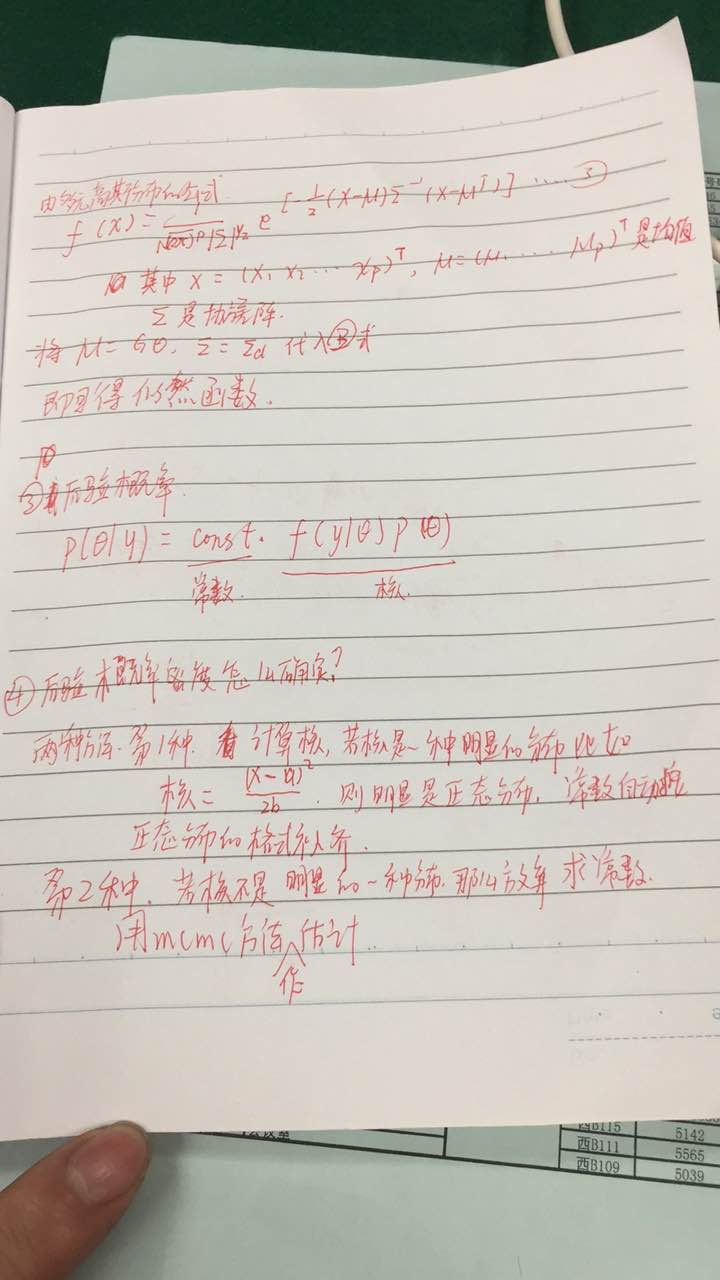 由多元高斯分布的公式
f(x) = 1/(√(2π)^p |Σ|^½) e [-½(x-M)Σ⁻¹(x-Mᵀ)] ····· ③
其中 x = (x₁ x₂ ··· xp)ᵀ, M = (M₁ ···· Mp)ᵀ 是均值
Σ 是协方差阵.
将 M = Gθ, Σ = Σd 代入③式
即可得似然函数.
③ 后验概率.
P(θ|y) = const. f(y|θ) P(θ)
常数. 核.
④ 后验概率密度怎么确定?
两种方法. 第1种. 计算核, 若核是一种明显的分布 比如
核 = (x-a)²/2b. 则明显是正态分布, 常数自动
正态分布的格式
第2种. 若核不是明显的一种分布. 那么放弃求常数.
用mcmc方法作估计.
西B115 5142
西B111 5565
西B109 5039